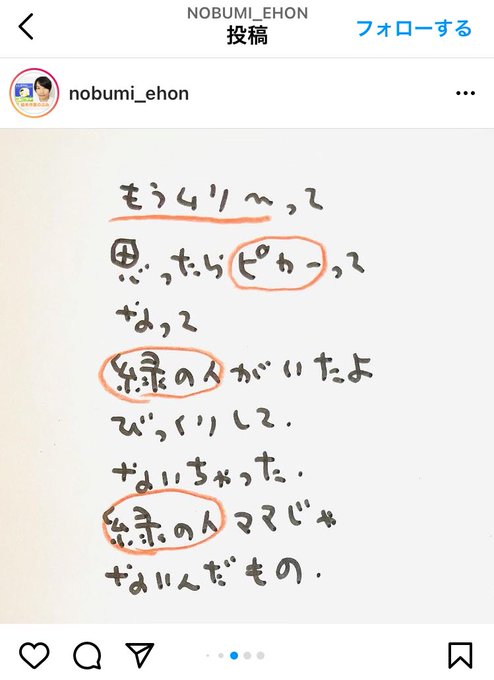 NOBUMI_EHON
投稿
フォローする
nobumi_ehon
もうムリ〜って
思ったらピカーって
なって
緑の人がいたよ
びっくりして.
ないちゃった.
緑の人ママじゃ
ないんだもの.